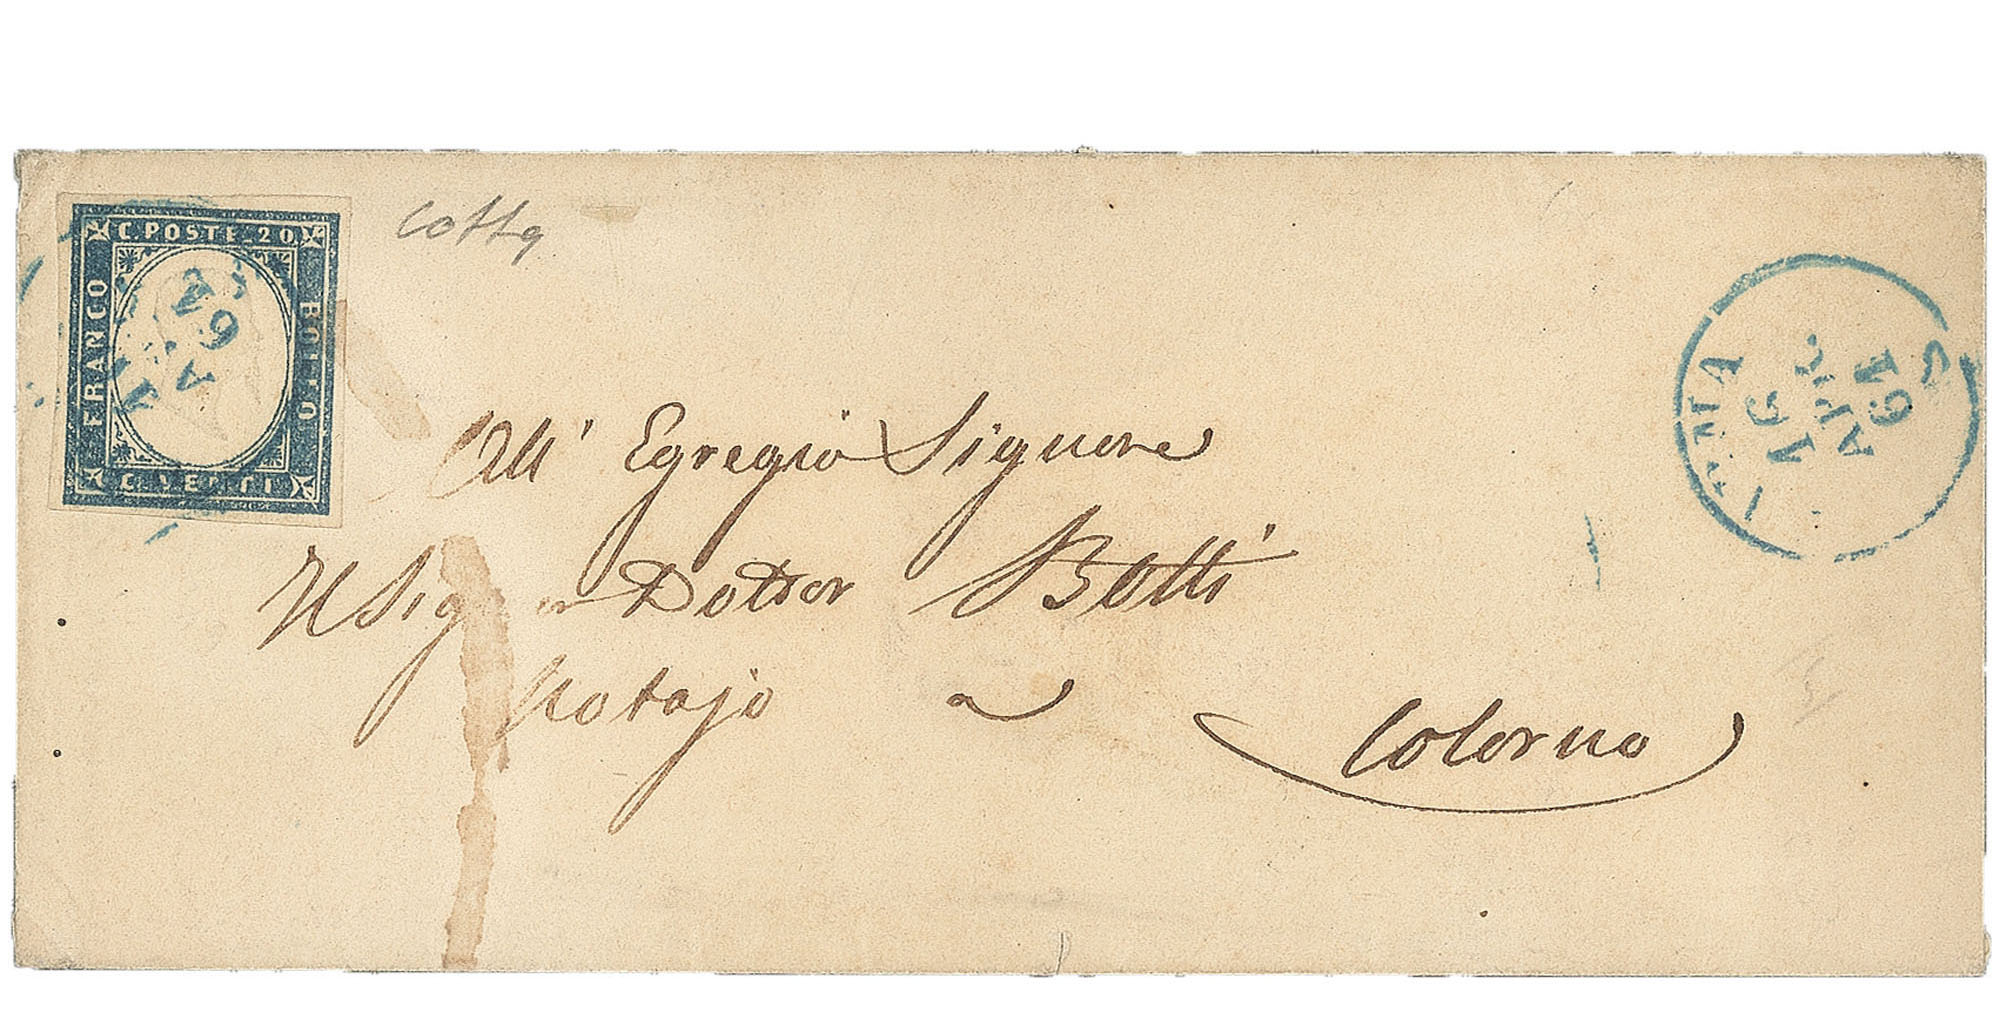 C. POSTE. 20
FRANCO
BOLLO
C. VENTI
61
Cotta
All' Egregio Signore
Il Sig Dottor Botti
Notajo a Colorno
16
APR
61